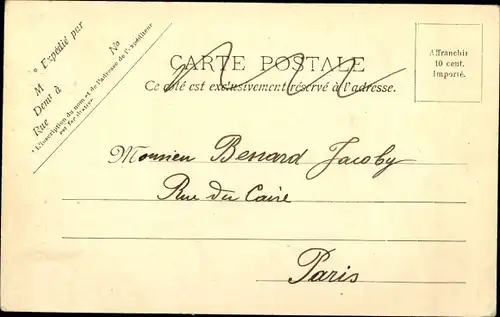 * Expédié par
M
Demt à
Rue No
* L'inscription du nom et de l'adresse de l'expéditeur
est facultative
CARTE POSTALE
Ce côté est exclusivement réservé à l'adresse.
Affranchir
10 cent.
Importé.
Monsieur Bernard Jacoby
Rue du Caire
Paris